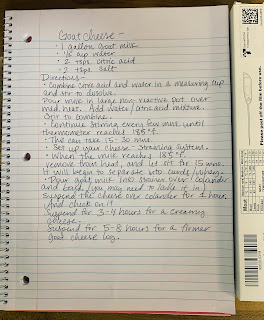 Goat Cheese -
· 1 gallon Goat milk
· 1/2 cup water
· 2 tsps. citric acid
· 2 tsps. Salt
Directions -
· Combine citric acid and water in a measuring cup
and stir to dissolve.
Pour milk in large non-reactive pot over
med. heat. Add water/citric acid mixture.
Stir to combine.
· Continue stirring every few mins until
thermometer reaches 185°f.
· This can take 15-20 mins.
· Set up your cheese straining system.
· When the milk reaches 185°f
remove from heat, and let sit for 15 mins.
It will begin to separate into curds/whey.
· Pour goat milk into strainer over colander
and bowl (you may need to ladle it in)
Suspend the cheese over colander for 1 hour.
And check on it
Suspend for 3-4 hours for a creamy
cheese.
Suspend for 5-8 hours for a firmer
Goat cheese log.
Please read off the line before use
Meat